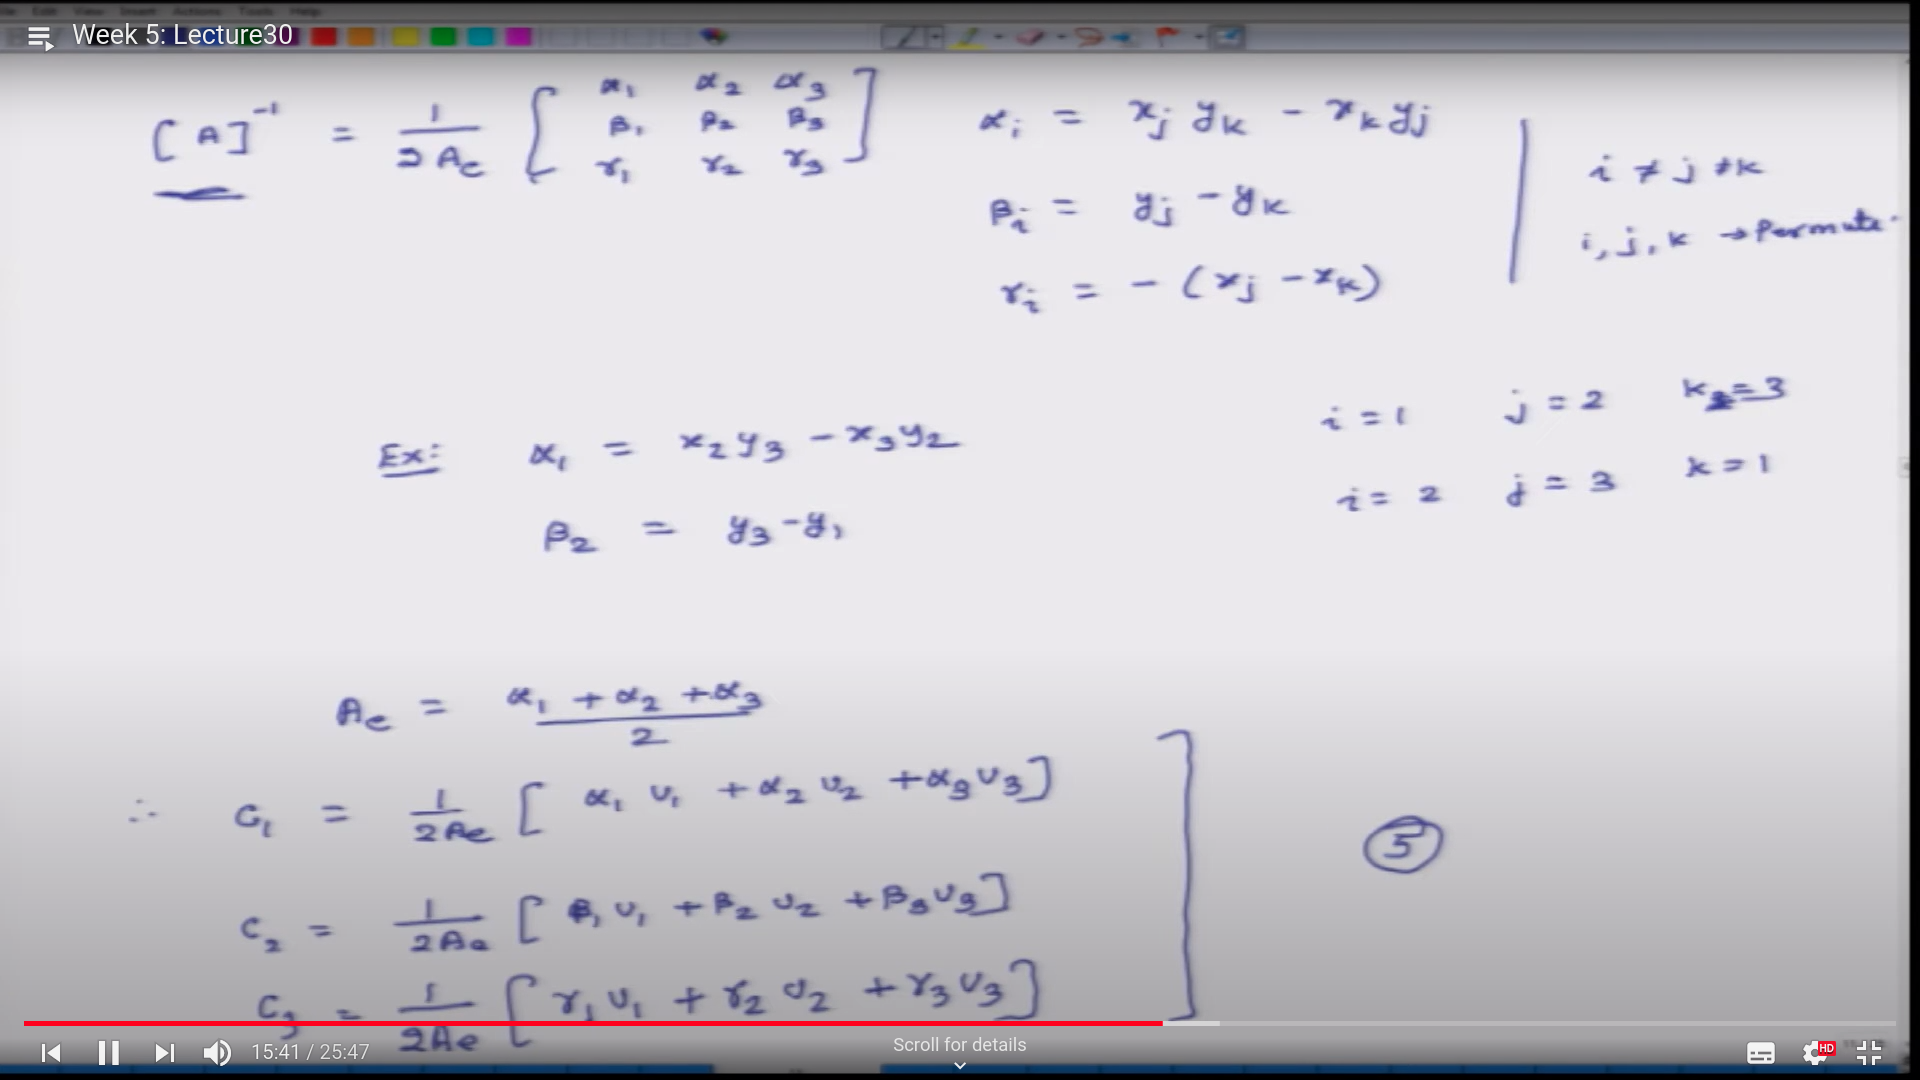 File Edit View Insert Actions Tools Help
Week 5: Lecture30
[A]⁻¹ = 1/2Ae [α₁ α₂ α₃
β₁ β₂ β₃
γ₁ γ₂ γ₃]
αᵢ = xⱼ yₖ - xₖ yⱼ
βᵢ = yⱼ - yₖ
γᵢ = - (xⱼ - xₖ)
i ≠ j ≠ k
i, j, k → Permute.
Ex: α₁ = x₂y₃ - x₃y₂
β₂ = y₃ - y₁
i = 1 j = 2 k = 3
i = 2 j = 3 k = 1
Ae = (α₁ + α₂ + α₃)/2
∴ C₁ = 1/2Ae [α₁ υ₁ + α₂ υ₂ + α₃ υ₃]
C₂ = 1/2Ae [β₁ υ₁ + β₂ υ₂ + β₃ υ₃]
C₃ = 1/2Ae [γ₁ υ₁ + γ₂ υ₂ + γ₃ υ₃]
5
15:41 / 25:47
Scroll for details
HD